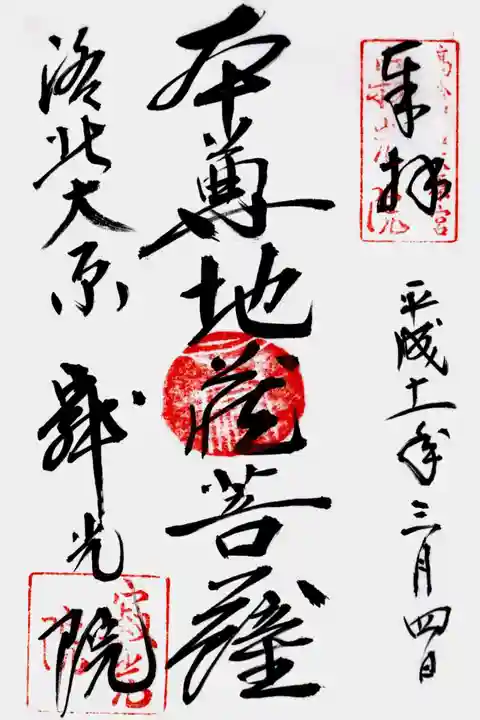 奉拝
平成十一年三月四日
本尊地蔵菩薩
洛北大原 寂光院